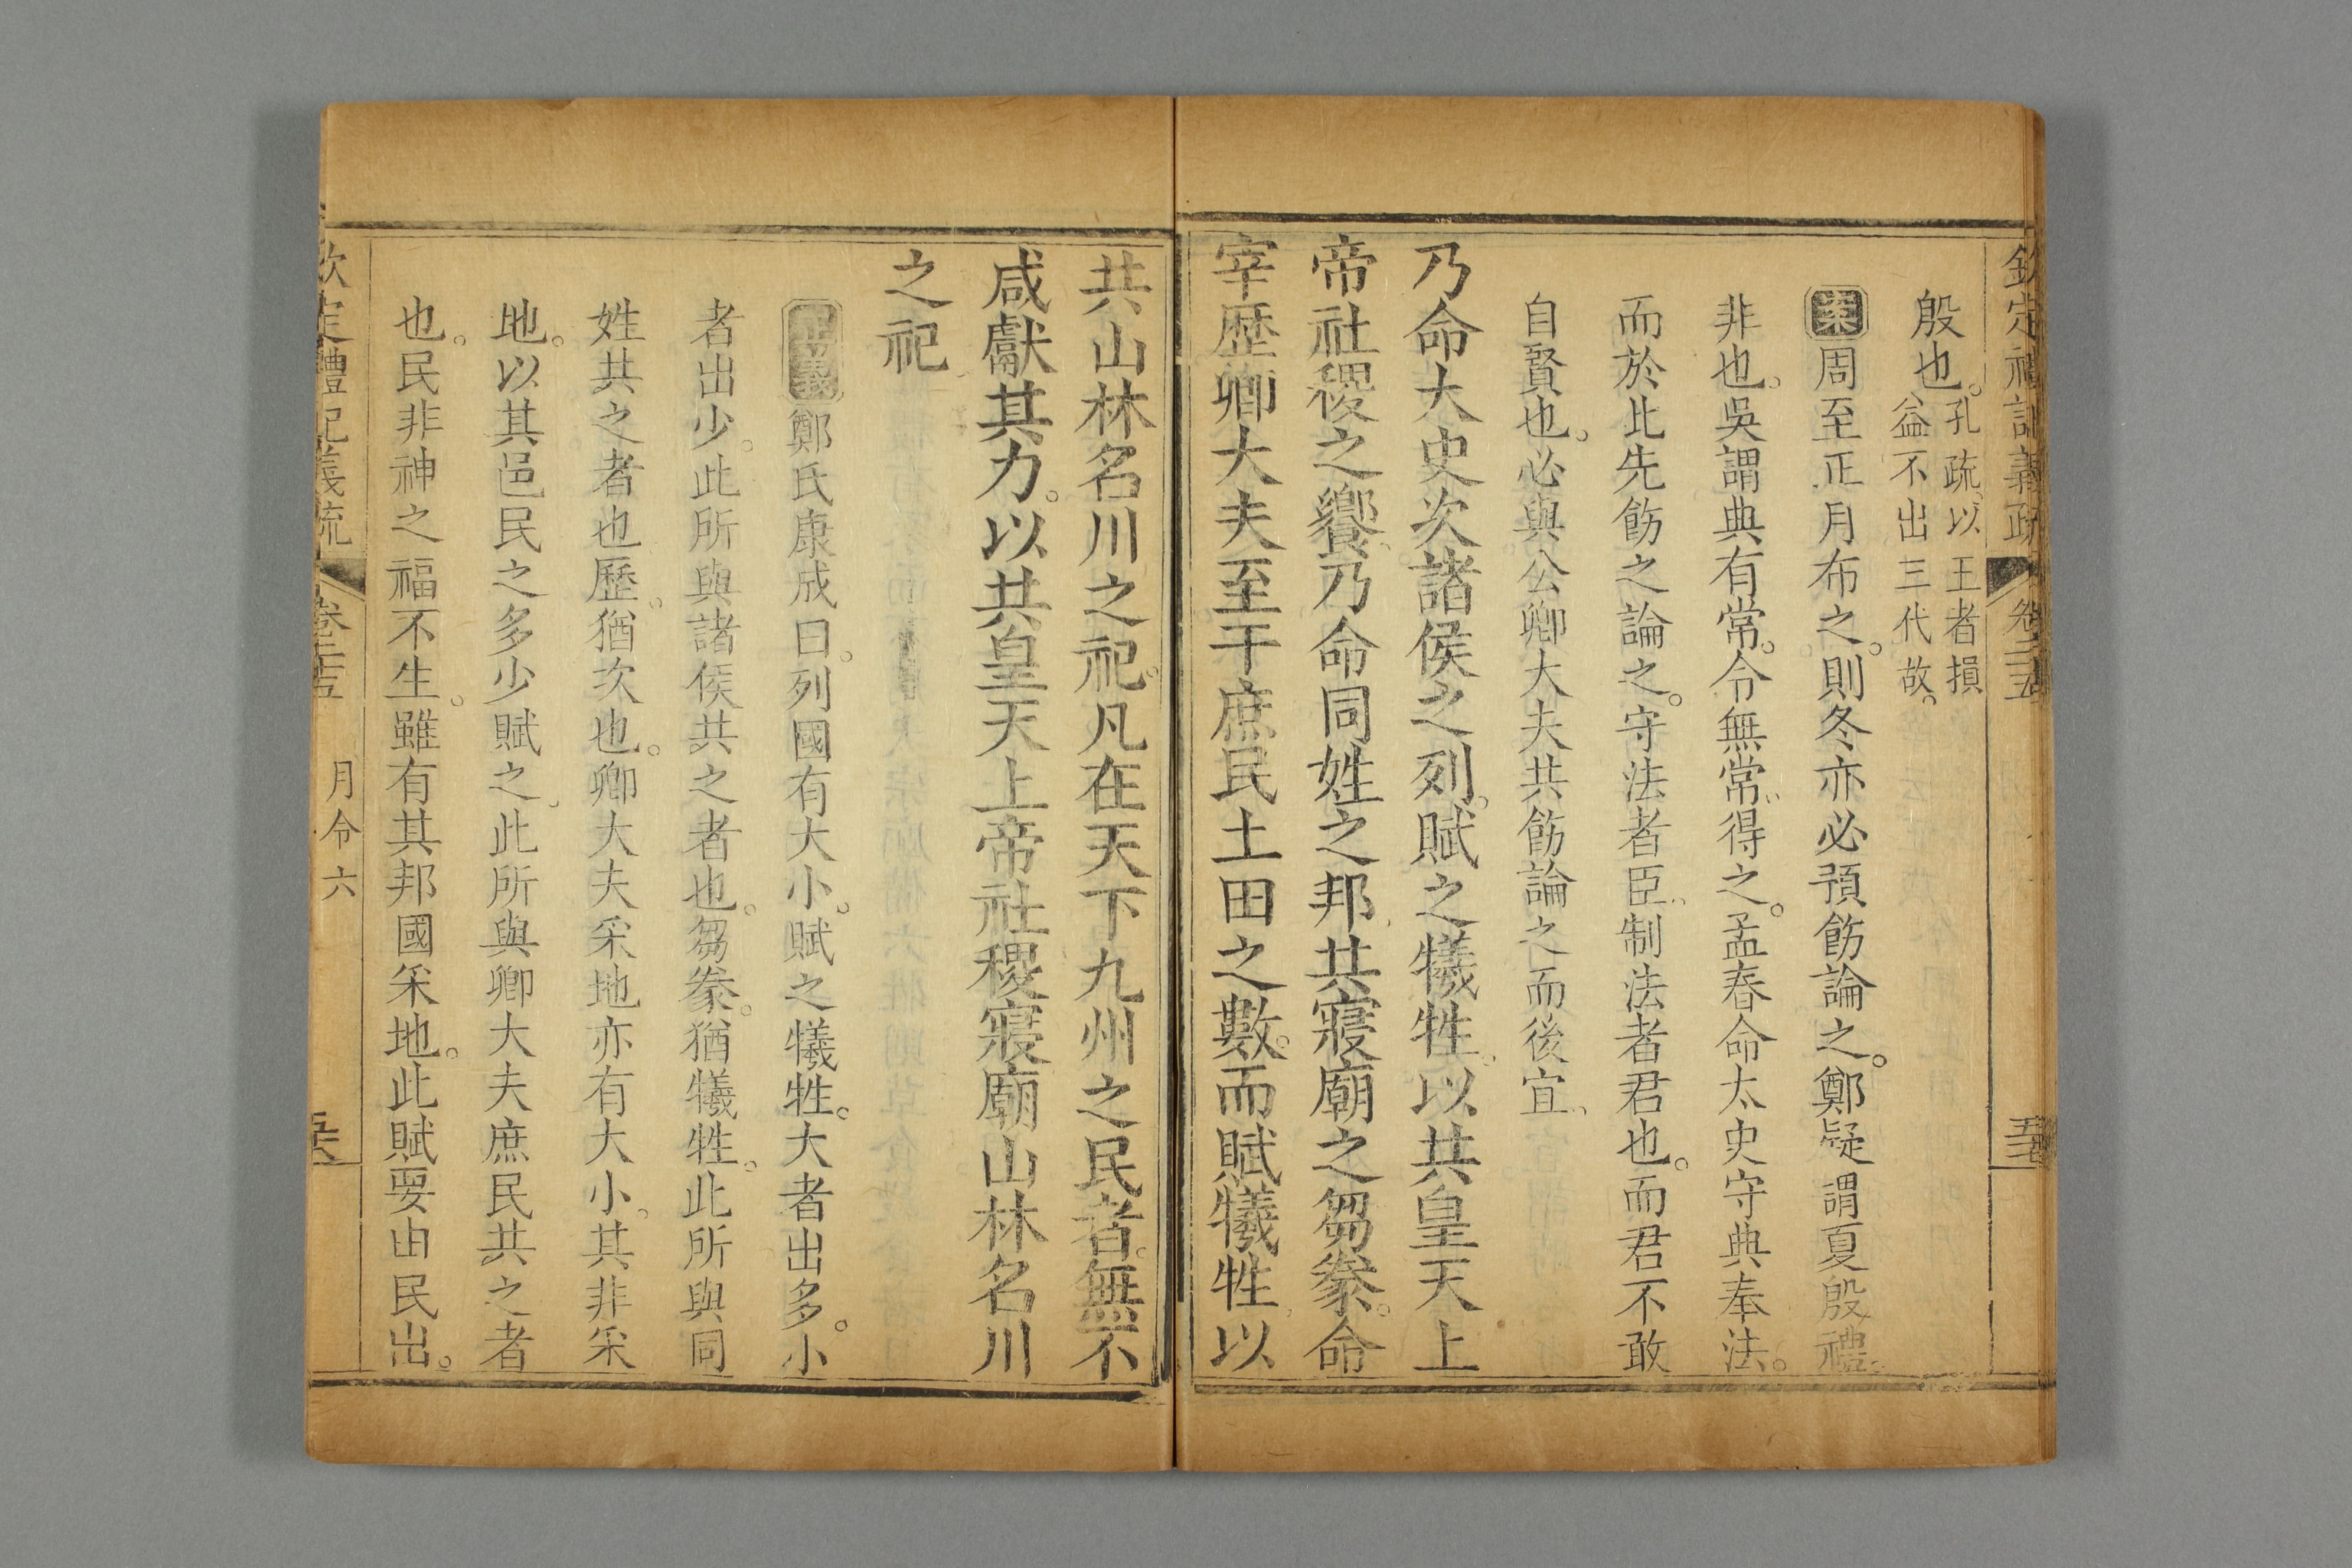 欽定禮記義疏 卷二十五
殷也。孔疏、以王者損
益不出三代故。
案周至正月布之。則冬亦必預飭論之。鄭疑謂夏殷禮。
非也。吳謂典有常。令無常。得之。孟春命太史守典奉法。
而於此先飭之論之。守法者臣、制法者君也。而君不敢
自賢也。必與公卿大夫共飭論之而後宜、
乃命大史次諸侯之列。賦之犧牲、以共皇天上
帝社稷之饗、乃命同姓之邦、共寢廟之芻豢。命
宰歴卿大夫至于庶民土田之數。而賦犧牲、以
共山林名川之祀。凡在天下九州之民者。無不
咸獻其力。以共皇天上帝社稷寢廟山林名川
之祀
正義鄭氏康成曰。列國有大小。賦之犧牲。大者出多。小
者出少。此所與諸侯共之者也。芻豢。猶犧牲。此所與同
姓共之者也。歷。猶次也。卿大夫采地亦有大小。其非采
地。以其邑民之多少賦之、此所與卿大夫庶民共之者
也。民非神之福不生。雖有其邦國采地。此賦要由民出。
欽定禮記義疏 卷二十五 月令六